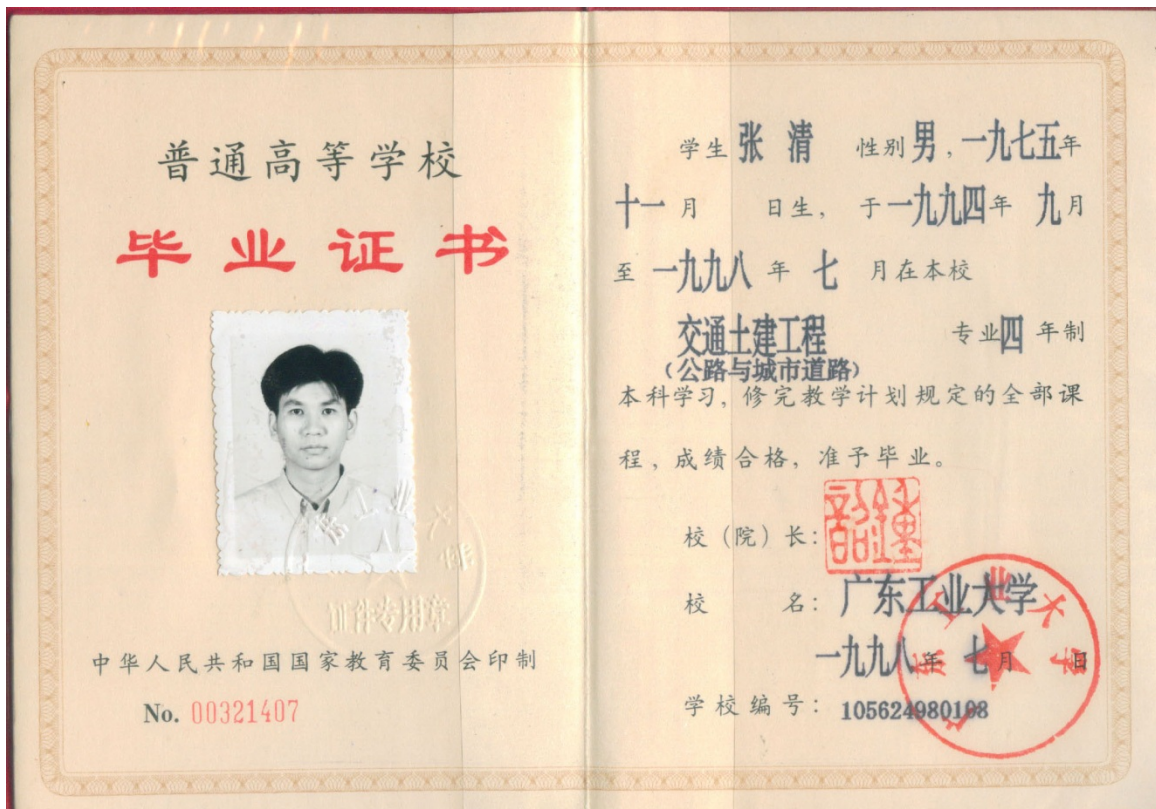 普通高等学校
毕业证书
工业大
证件专用章
中华人民共和国国家教育委员会印制
No. 00321407
学生 张 清 性别 男，一九七五年
十一月 日生，于一九九四年 九月
至 一九九八 年 七 月在本校
交通土建工程 专业四年制
（公路与城市道路）
本科学习，修完教学计划规定的全部课
程，成绩合格，准予毕业。
校（院）长：
校 名：广东工业大学
一九九八年 七月 日
学校编号：105624980108
广东工业大学